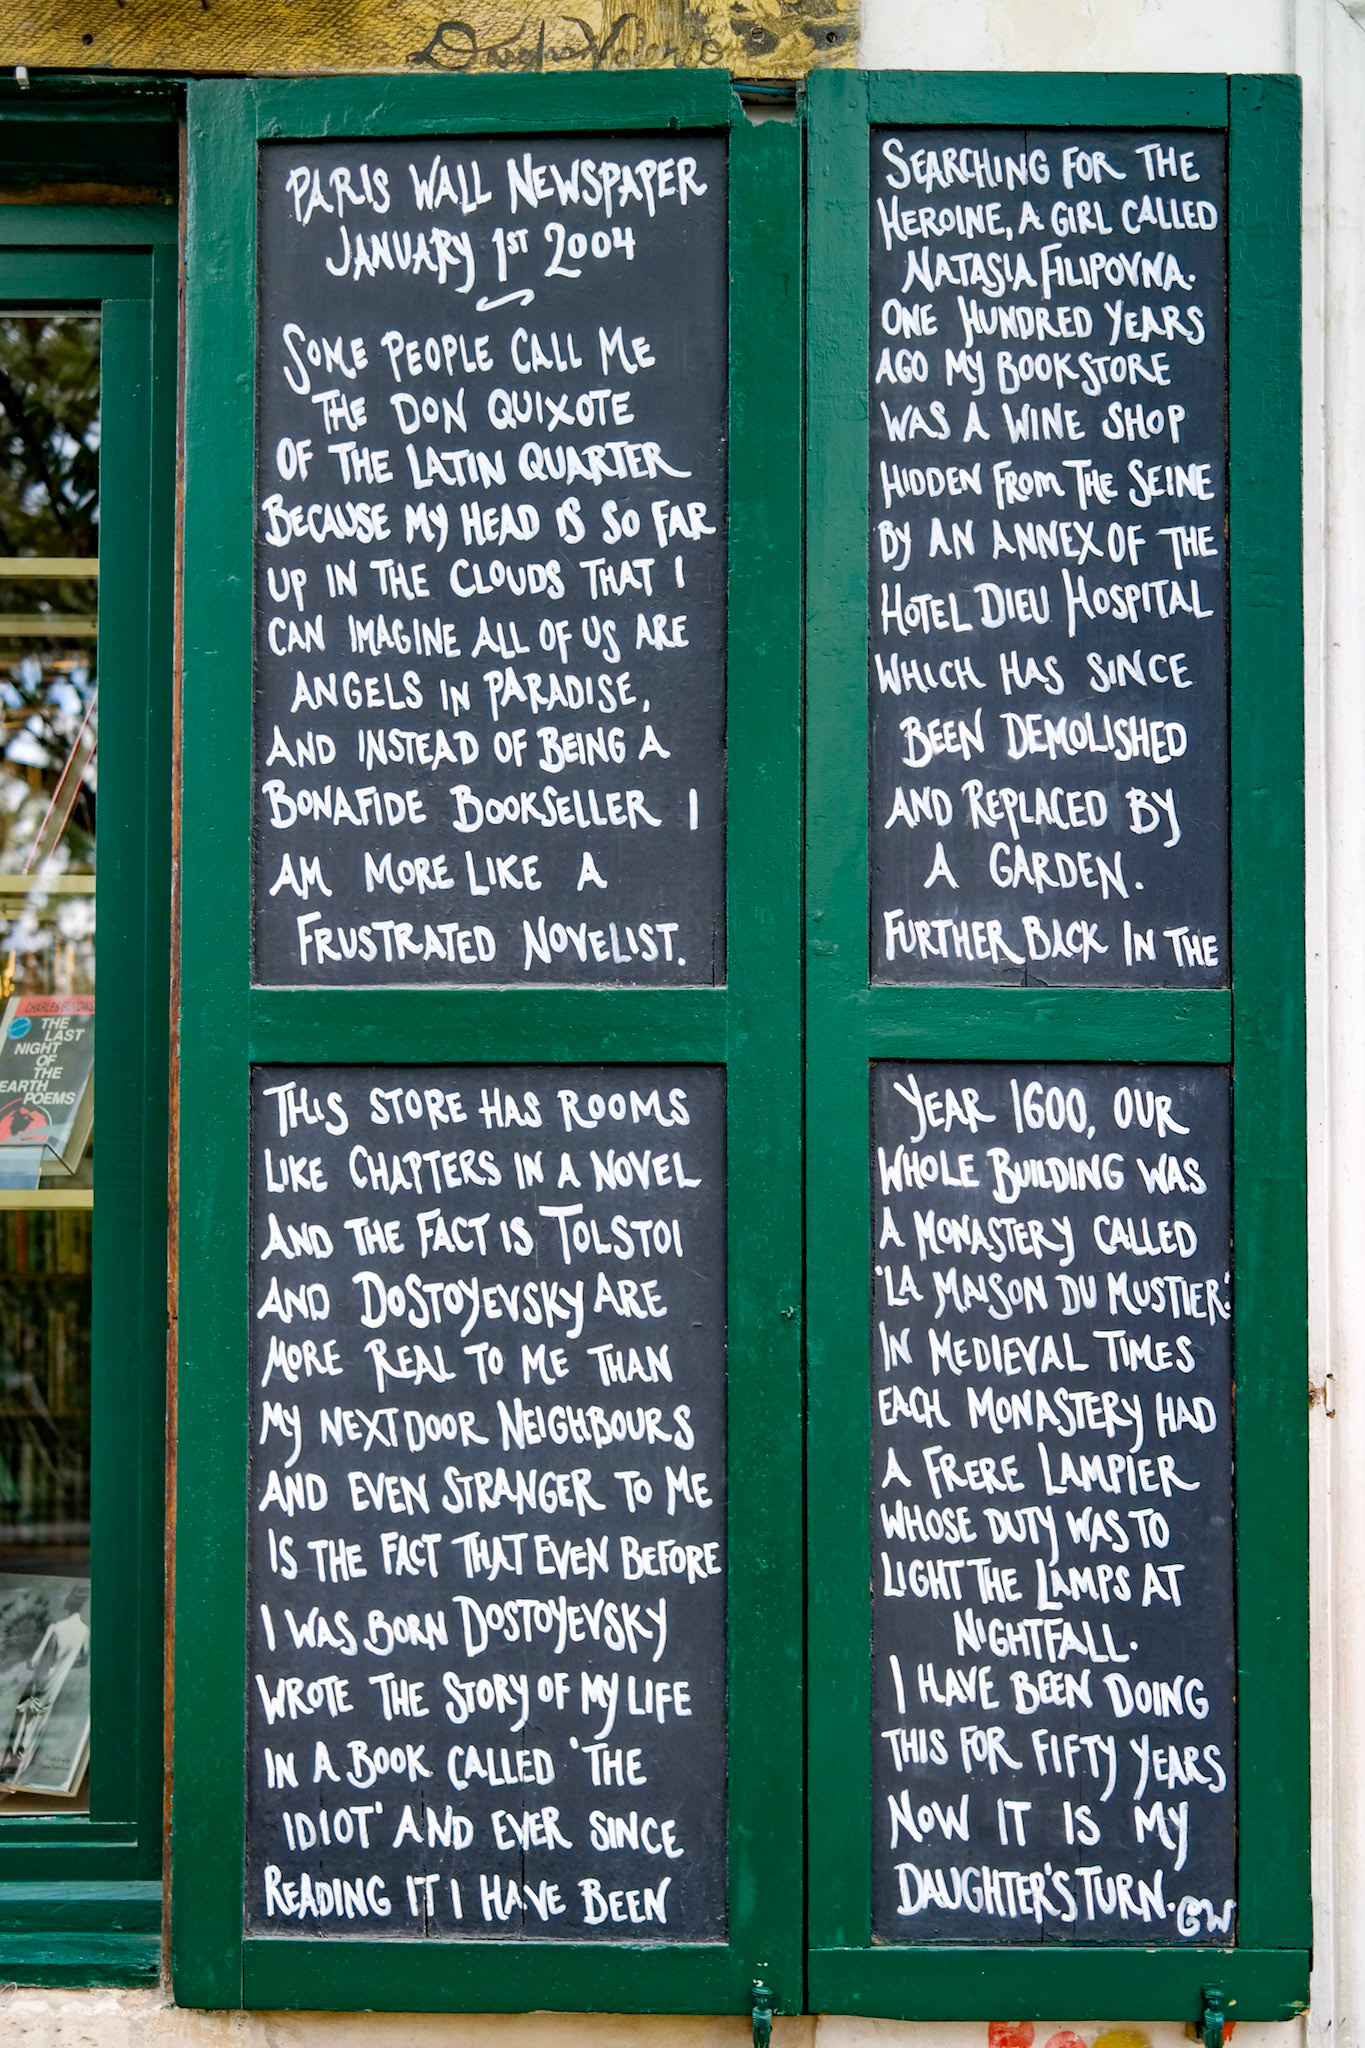 PARIS WALL NEWSPAPER
JANUARY 1ST 2004
SOME PEOPLE CALL ME
THE DON QUIXOTE
OF THE LATIN QUARTER
BECAUSE MY HEAD IS SO FAR
UP IN THE CLOUDS THAT I
CAN IMAGINE ALL OF US ARE
ANGELS IN PARADISE,
AND INSTEAD OF BEING A
BONAFIDE BOOKSELLER I
AM MORE LIKE A
FRUSTRATED NOVELIST.
THIS STORE HAS ROOMS
LIKE CHAPTERS IN A NOVEL
AND THE FACT IS TOLSTOI
AND DOSTOYEVSKY ARE
MORE REAL TO ME THAN
MY NEXT DOOR NEIGHBOURS
AND EVEN STRANGER TO ME
IS THE FACT THAT EVEN BEFORE
I WAS BORN DOSTOYEVSKY
WROTE THE STORY OF MY LIFE
IN A BOOK CALLED 'THE
IDIOT' AND EVER SINCE
READING IT I HAVE BEEN
SEARCHING FOR THE
HEROINE, A GIRL CALLED
NATASIA FILIPOVNA.
ONE HUNDRED YEARS
AGO MY BOOKSTORE
WAS A WINE SHOP
HIDDEN FROM THE SEINE
BY AN ANNEX OF THE
HOTEL DIEU HOSPITAL
WHICH HAS SINCE
BEEN DEMOLISHED
AND REPLACED BY
A GARDEN.
FURTHER BACK IN THE
YEAR 1600, OUR
WHOLE BUILDING WAS
A MONASTERY CALLED
'LA MAISON DU MUSTIER.'
IN MEDIEVAL TIMES
EACH MONASTERY HAD
A FRERE LAMPIER
WHOSE DUTY WAS TO
LIGHT THE LAMPS AT
NIGHTFALL.
I HAVE BEEN DOING
THIS FOR FIFTY YEARS
NOW IT IS MY
DAUGHTER'S TURN. GW
CHARLES
THE
LAST
NIGHT
OF
THE
EARTH
POEMS